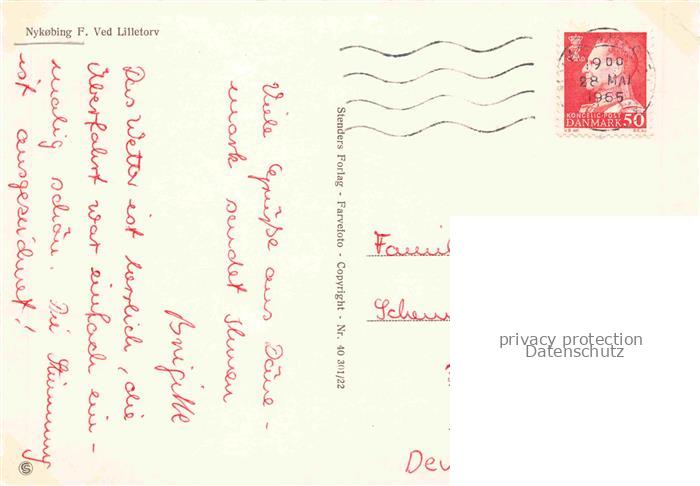 Nykøbing F. Ved Lilletorv
Viele Grüße aus Däne-
mark sendet Ihnen
Brigitte
Das Wetter ist herrlich, die
Überfahrt war einfach ein-
malig schön. Die Stimmung
ist ausgezeichnet!
Stenders Forlag - Farvefoto - Copyright - Nr. 40 301/22
1900
28 MAI
1965
KONGELIG POST
DANMARK 50
Famil
Schem
Deu
privacy protection
Datenschutz